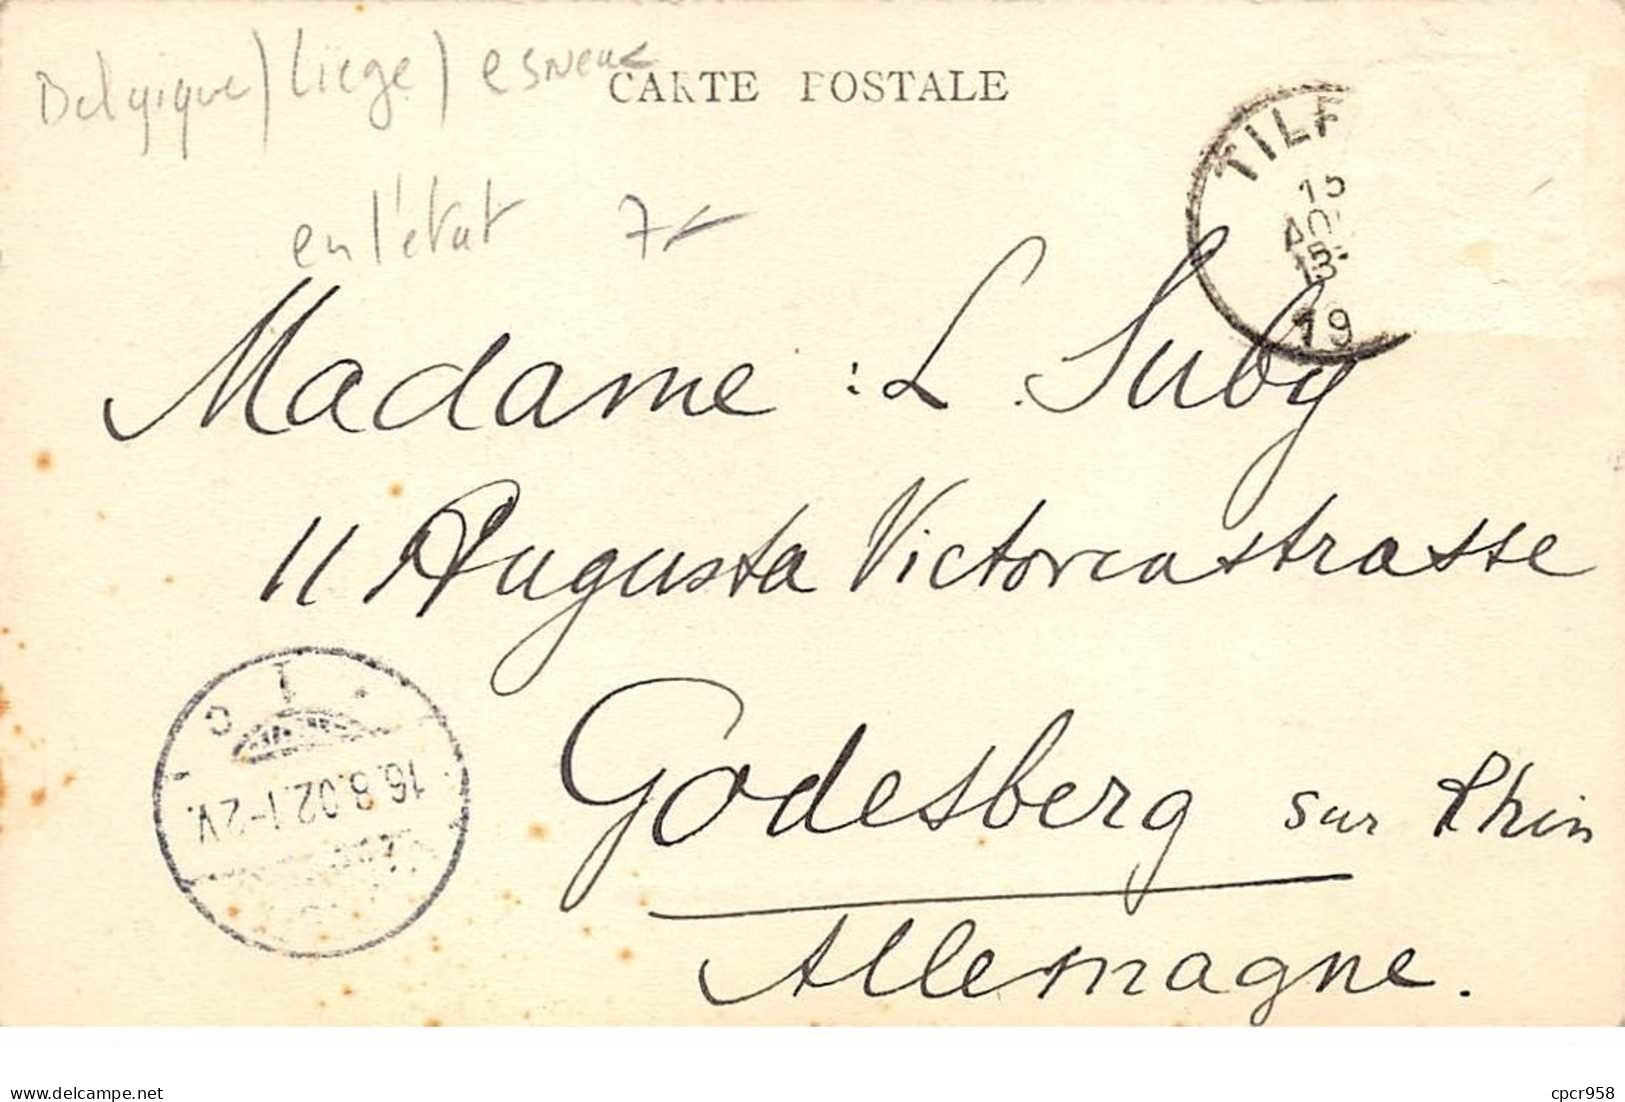 Belgique / Liège / esneux
CARTE POSTALE
en l'état 7
TILF
15
AOU
19
Madame : L. Suby
11 Augusta Victoriastrasse
16.8.02.1-2V.
Godesberg sur Rhin
Allemagne.
cpcr958